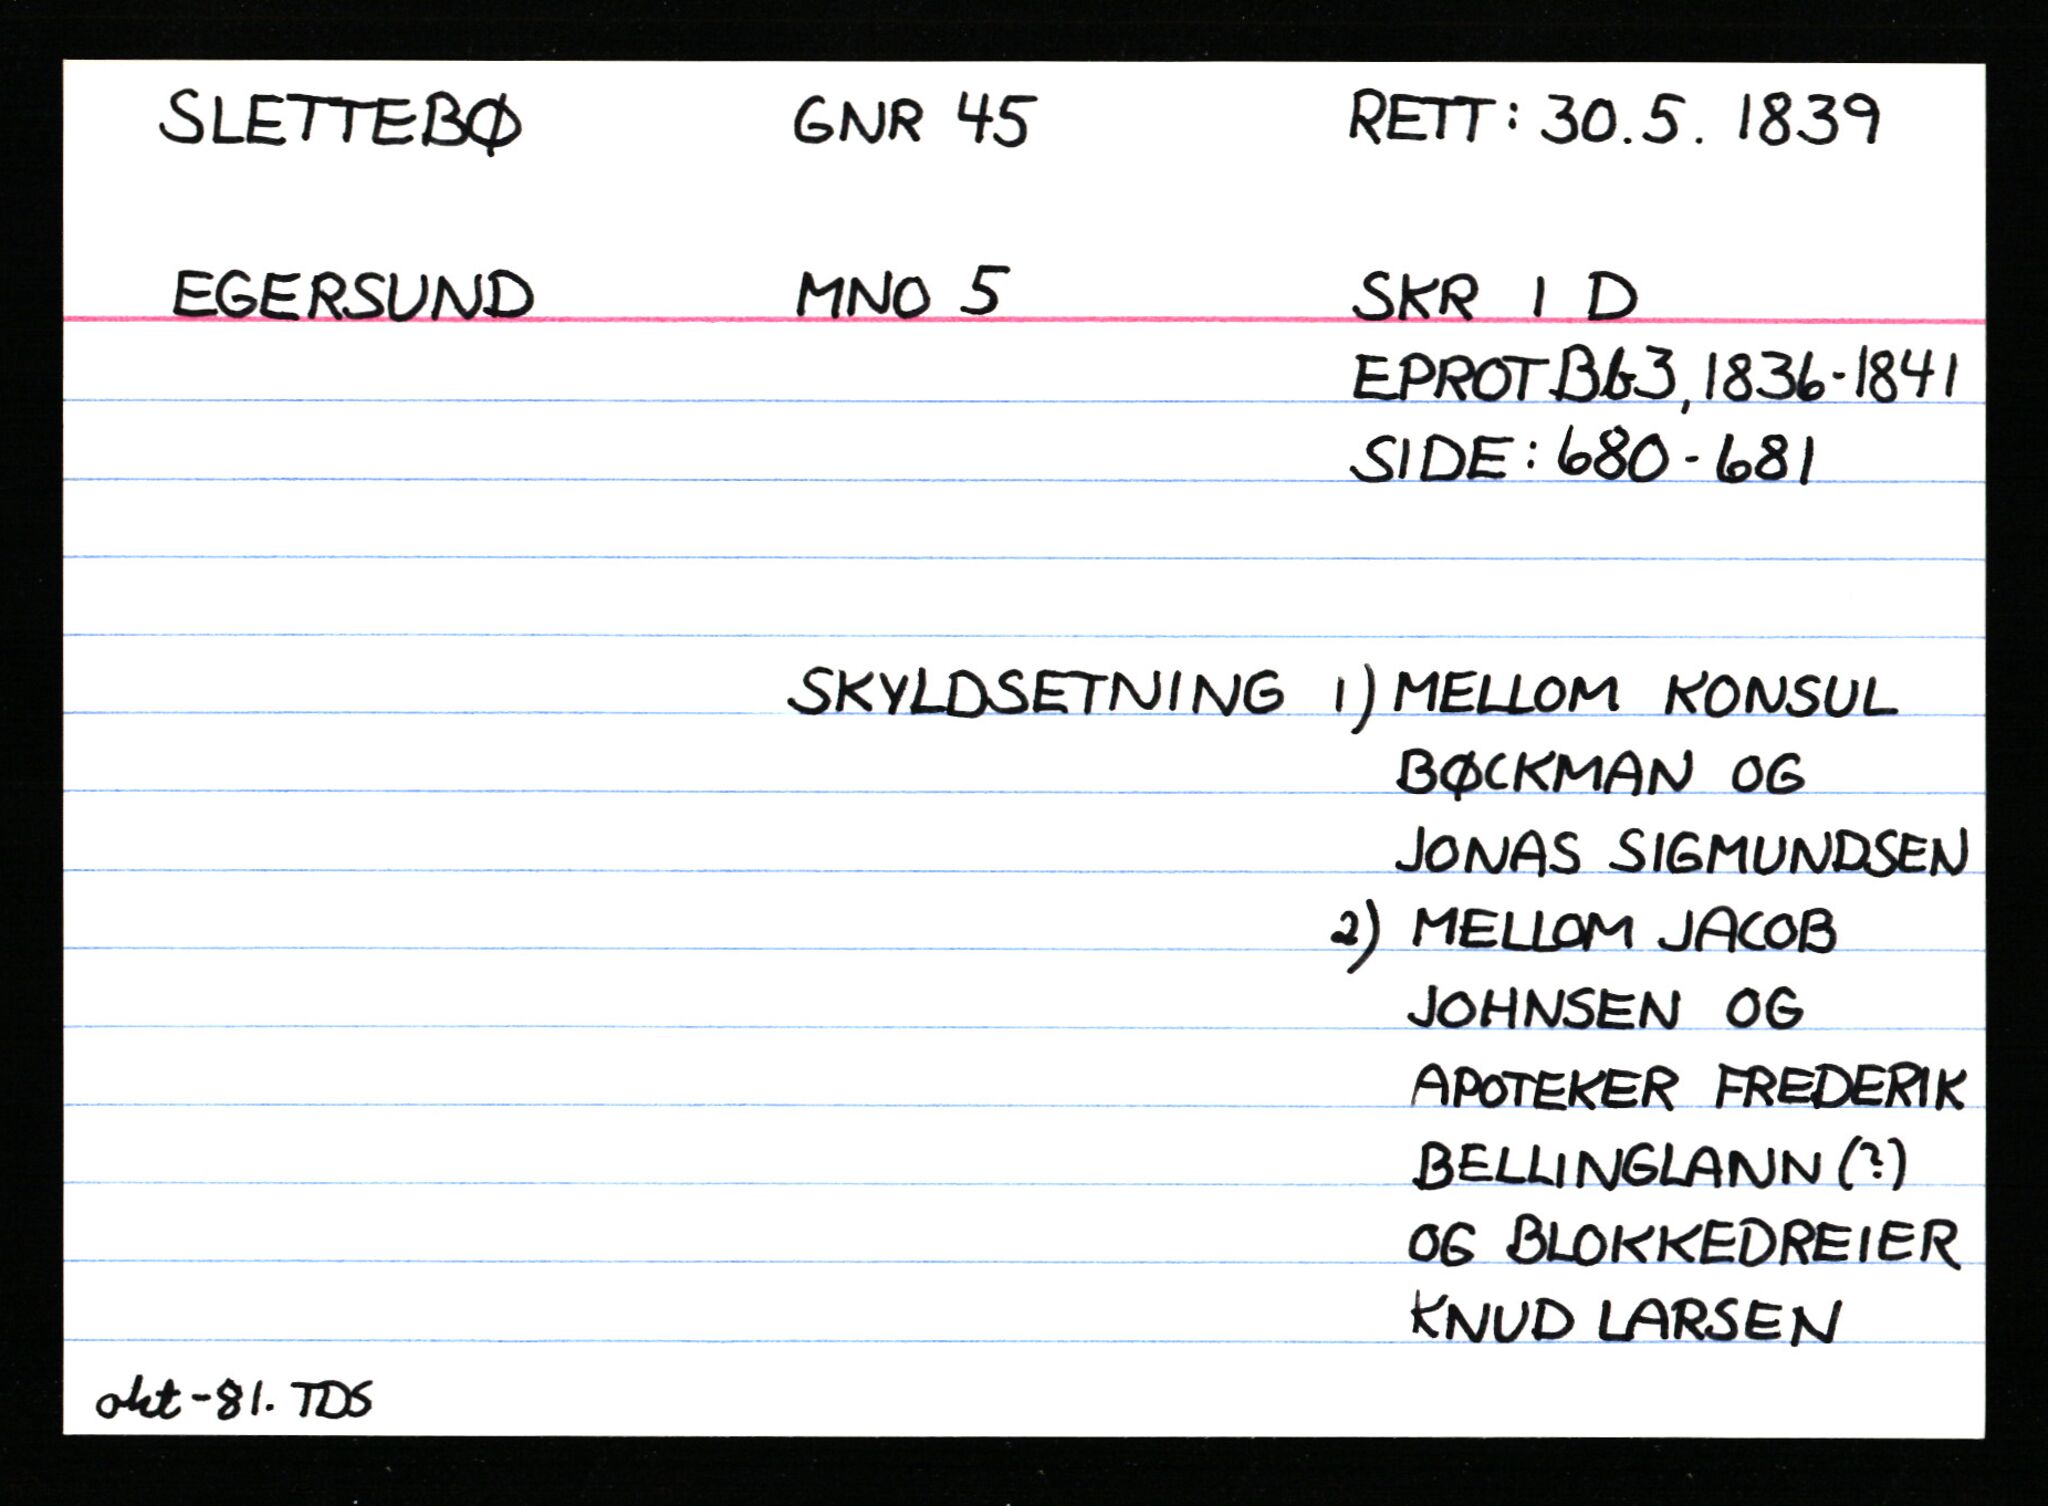 SLETTEBØ GNR 45 RETT: 30.5. 1839
EGERSUND MNO 5 SKR 1 D
EPROT Bb3, 1836-1841
SIDE: 680-681
SKYLDSETNING 1) MELLOM KONSUL
BØCKMAN OG
JONAS SIGMUNDSEN
2) MELLOM JACOB
JOHNSEN OG
APOTEKER FREDERIK
BELLINGLANN (?)
OG BLOKKEDREIER
KNUD LARSEN
okt-81. TDS